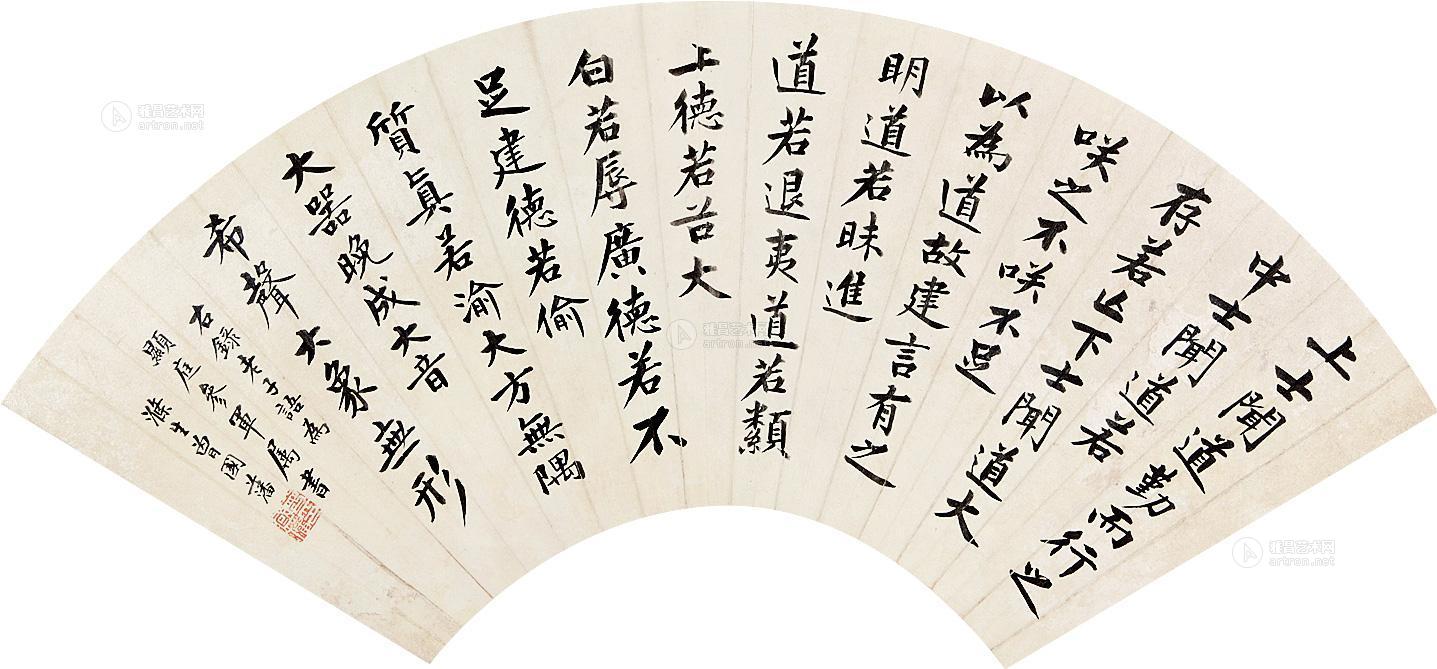 上士聞道勤而行之
中士聞道若
存若亡下士聞道大
咲之不咲不足
以為道故建言有之
明道若昧進
道若退夷道若纇
上德若谷大
白若辱廣德若不
足建德若偷
質真若渝大方無隅
大器晚成大音
希聲大象無形
右錄老子語為
顯庭參軍属書
滌生曾國藩
雅昌艺术网
artron.net
雅昌艺术网
artron.net
雅昌艺术网
artron.net